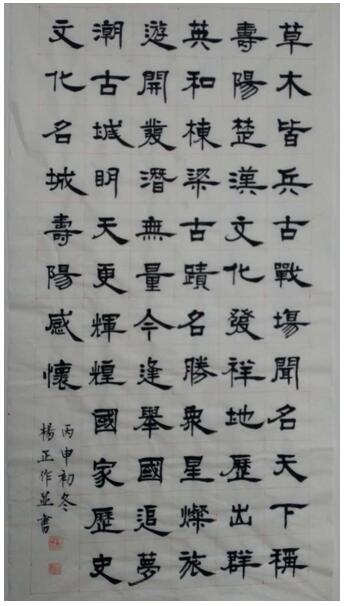 草木皆兵古戰場聞名天下稱
壽陽楚漢文化發祥地歷出群
英和棟梁古蹟名勝衆星燦旅
遊開發潛無量今逢舉國追夢
潮古城明天更輝煌國家歷史
文化名城壽陽感懷
丙申初冬
楊正作並書